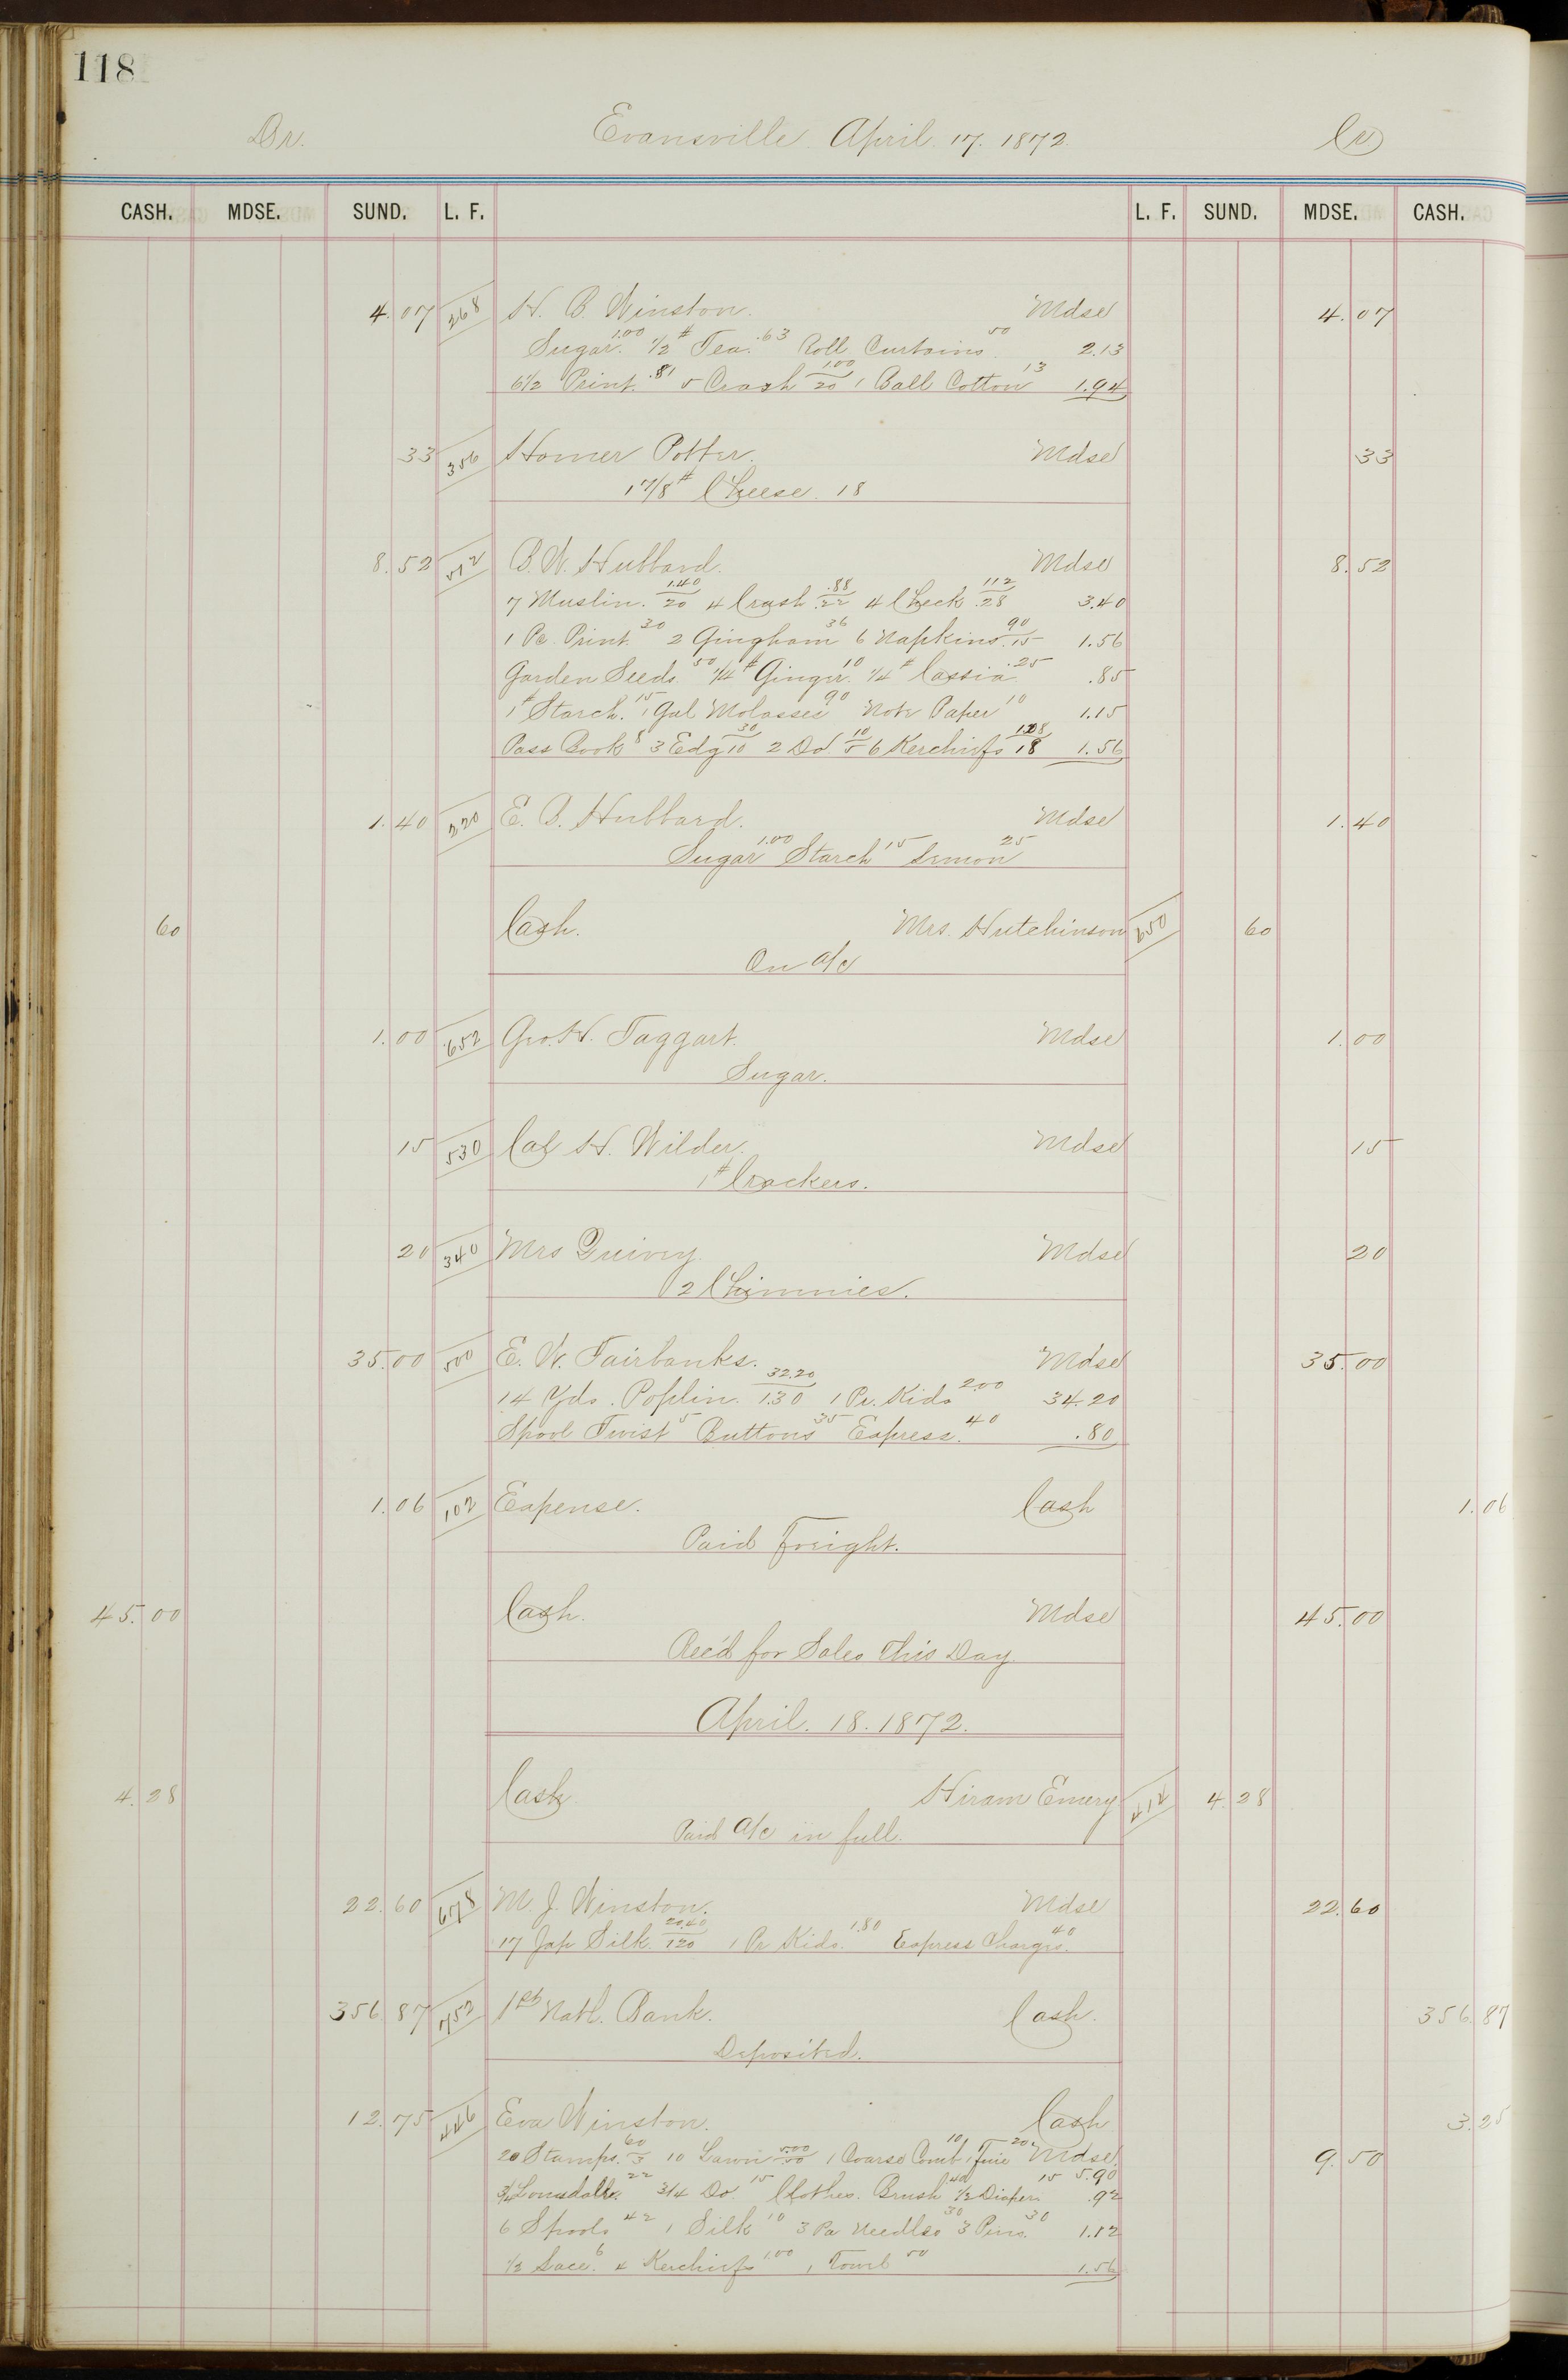 118
Dr. Evansville April. 17. 1872. Cr
CASH. MDSE. SUND. L. F. L. F. SUND. MDSE. CASH.
4.07 268 H. B. Winston. Mdse 4.07
Sugar. 1.00 1/2 # Tea. .63 Roll Curtains 50 2.13
6 1/2 Print. .81 5 Crash 1.00/20 1 Ball Cotton 13 1.94
33 356 Homer Potter. Mdse 33
1 7/8 # Cheese. 18
8.52 512 B. W. Hubbard. Mdse 8.52
7 Muslin. 1.40/20 4 Crash .88/.22 4 Check 1.12/.28 3.40
1 Pc. Print. 30 2 Gingham 36 6 Napkins. 90/15 1.56
Garden Seeds. 50 1/4 # Ginger. 10 1/4 # Cassia .25 .85
1 # Starch. 15 1 Gal Molasses 90 Note Paper 10 1.15
Pass Book 8 3 Edg 30/10 2 Do. 10/5 6 Kerchiefs 1.08/18 1.56
1.40 220 E. B. Hubbard. Mdse 1.40
Sugar 1.00 Starch 15 Lemon 25
60 Cash. Mrs. Hutchinson 650 60
On a/c
1.00 652 Geo. H. Taggart. Mdse 1.00
Sugar.
15 530 Cal H. Wilder. Mdse 15
1 # Crackers.
20 340 Mrs Quivey. Mdse 20
2 Chimnies.
35.00 500 E. W. Fairbanks. Mdse 35.00
14 Yds. Poplin. 32.20/1.30 1 Pr. Kids 2.00 34.20
Spool Twist 5 Buttons 35 Express. 40 .80
1.06 102 Expense. Cash 1.06
Paid Freight.
45.00 Cash. Mdse 45.00
Rec'd for Sales This Day.
April. 18. 1872.
4.28 Cash. Hiram Emery 414 4.28
Paid a/c in full.
22.60 678 M. J. Winston. Mdse 22.60
17 Jap Silk. 20.40/120 1 Pr Kids. 1.80 Express Charges. 40
356.87 752 1st Natl. Bank. Cash. 356.87
Deposited.
12.75 446 Eva Winston. Cash 3.25
20 Stamps. 60/3 10 Lawn 5.00/50 1 Coarse Comb 10 1 Fine 20 Mdse. 9.50
5.90
3/4 Lonsdale. 22 3/4 Do. 15 Clothes. Brush 40 1/2 Diaper. 15 .92
6 Spools 42 1 Silk 10 3 Pa Needles 30 3 Pins. 30 1.12
1/2 Lace. 6 4 Kerchiefs 1.00 1 Towel 50 1.56